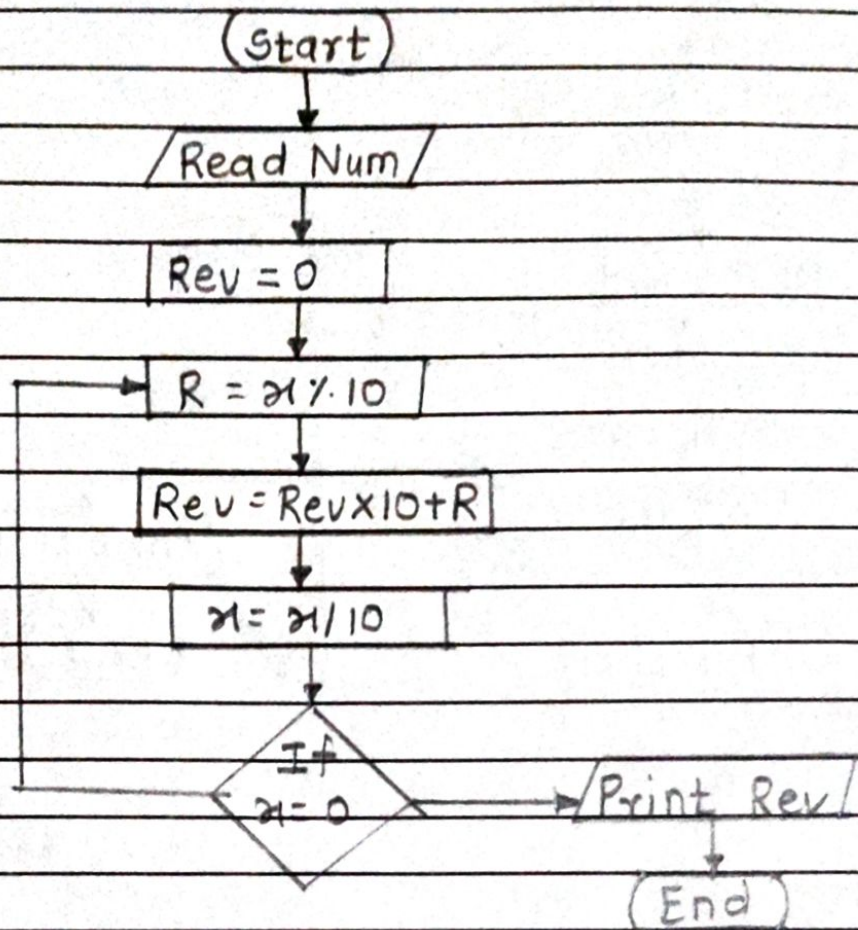 Start
Read Num
Rev = 0
R = x % 10
Rev = Rev x 10 + R
x = x / 10
If
x = 0
Print Rev
End